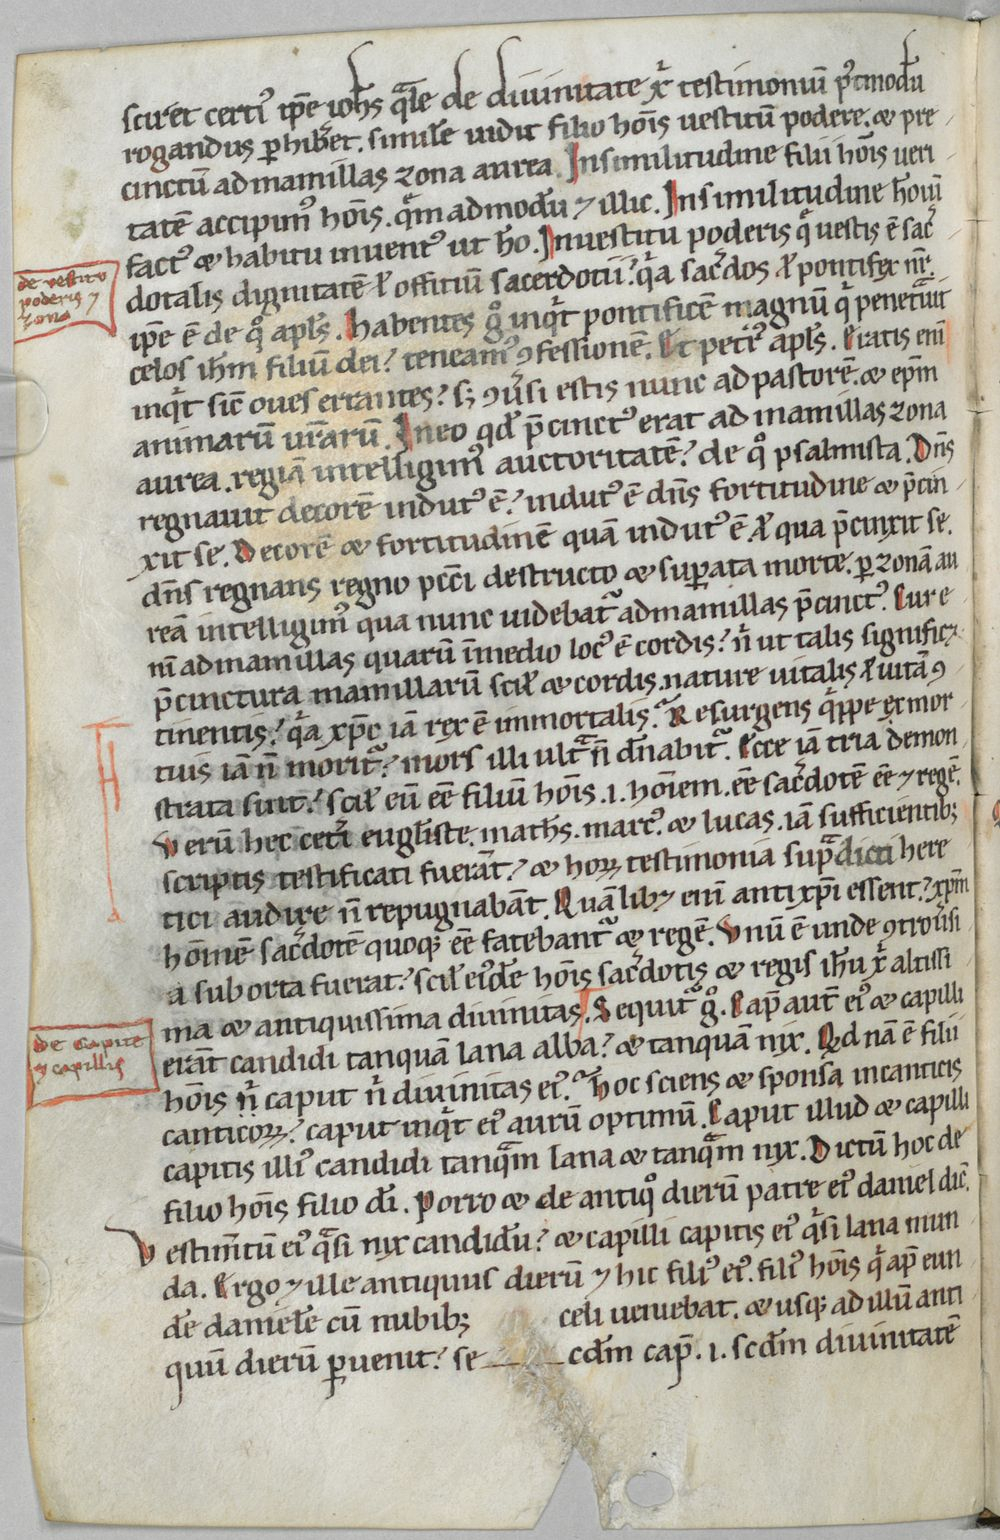 sciret certi᷒ ip̄e ioh̄s q̄le de diuinitate xp̄i testimoniū p᷒tmodū
rogandus ꝑhib&. simile uidit filio hoīs uestitū podere. & pre
cinctū ad mamillas zona aurea. In similitudine filii hoīs ueri
tatē accipim᷒ hoīs. quēmadmodū ⁊ illic. In similitudine hoīū
fact᷒ & habitu inuent᷒ ut hō. In uestitu poderis q̄ uestis ē sac̄
de vestitu
poderis ⁊
zona
dotalis dignitatē ł offitiū sacerdotii? q̄a sac̄dos ł pontifex nr̄.
ip̄e ē de q̊ apl̄s. Habentes g̊ inq̄t pontificē magnū q̄ penetrauit
celos ih̄m filiū dei? teneam᷒ ꝯfessionē. Et petr᷒ apl̄s. Eratis enī
inq̄t sic̄ oues errantes? sꝫ ꝯuersi estis nunc ad pastorē. & ep̄m
animarū ur̄arū. In eo qd̄ p̄cinct᷒ erat ad mamillas zona
aurea. regiā intelligim᷒ auctoritatē? de q̊ psalmista. Dn̄s
regnauit decorē indut᷒ ē? indut᷒ ē dn̄s fortitudine & p̄cin
xit se. Decorē & fortitudinē quā indut᷒ ē. ł qua p̄cinxit se.
dn̄s regnans regno pcc̄i destructo & suꝑata morte. ꝑ zonā au
reā intelligim᷒ qua nunc uidebat᷑ ad mamillas p̄cinct᷒. Cur e
nī ad mamillas quarū ī medio loc᷒ ē cordis? n̄ ut talis significꝫ
p̄cinctura mamillarū scił & cordis. nature uitalis ł uitā ꝯ
tinentis? q̄a xp̄c iā rex ē immortalis. Resurgens q̄ppe ex mor
tuis iā n̄ morit᷑? mors illi ultra n̄ dn̄abit᷑. Ecce iā tria demon
strata sunt? scił eū ēē filiū hoīs .i. hoīem. ēē sac̄dotē ēē ⁊ regē.
Verū hec cet̄i eugl̄iste. math̄s. marc᷒. & lucas. iā sufficientibꝫ
scriptis testificati fuerāt? & hoꝝ testimonia supradicti here
tici audire n̄ repugnabāt. Quālibꝫ enī antixp̄i essent? xp̄m
hoīnē sac̄dotē quoqꝫ ēē fatebant᷑ & regē. Vnū ē unde ꝯtrouersi
a suborta fuerat? scił ei᷒dē hoīs sac̄dotis & regis ih̄u xp̄i altissi
ma & antiquissima diuinitas. Sequit᷑ g̊. Cap̄ aut̄ ei᷒ & capilli
de capite
⁊ capillis
erāt candidi tanquā lana alba? & tanquā nix. Qd̄ nā ē filii
hoīs n̄ caput n̄ diuinitas ei᷒? Hoc sciens & sponsa in canticis
canticoꝝ? caput inq̄t ei᷒ aurū optimū. Caput illud & capilli
capitis illi᷒ candidi tanq̄m lana & tanq̄m nix. Dictū hoc de
filio hoīs filio dī. Porro & de antiq̊ dierū patre ei᷒ daniel dic̄.
Vestimtū ei᷒ q̄si nix candidū? & capilli capitis ei᷒ q̄si lana mun
da. Ergo ⁊ ille antiquus dierū ⁊ hic fili᷒ ei᷒. fili᷒ hoīs q̄ ap̄ eun
dē danielē cū nubibꝫ celi ueniebat. & usqꝫ ad illū anti
quū dierū ꝑuenit? se cdm̄ cap̄ .i. scdm̄ diuinitatē